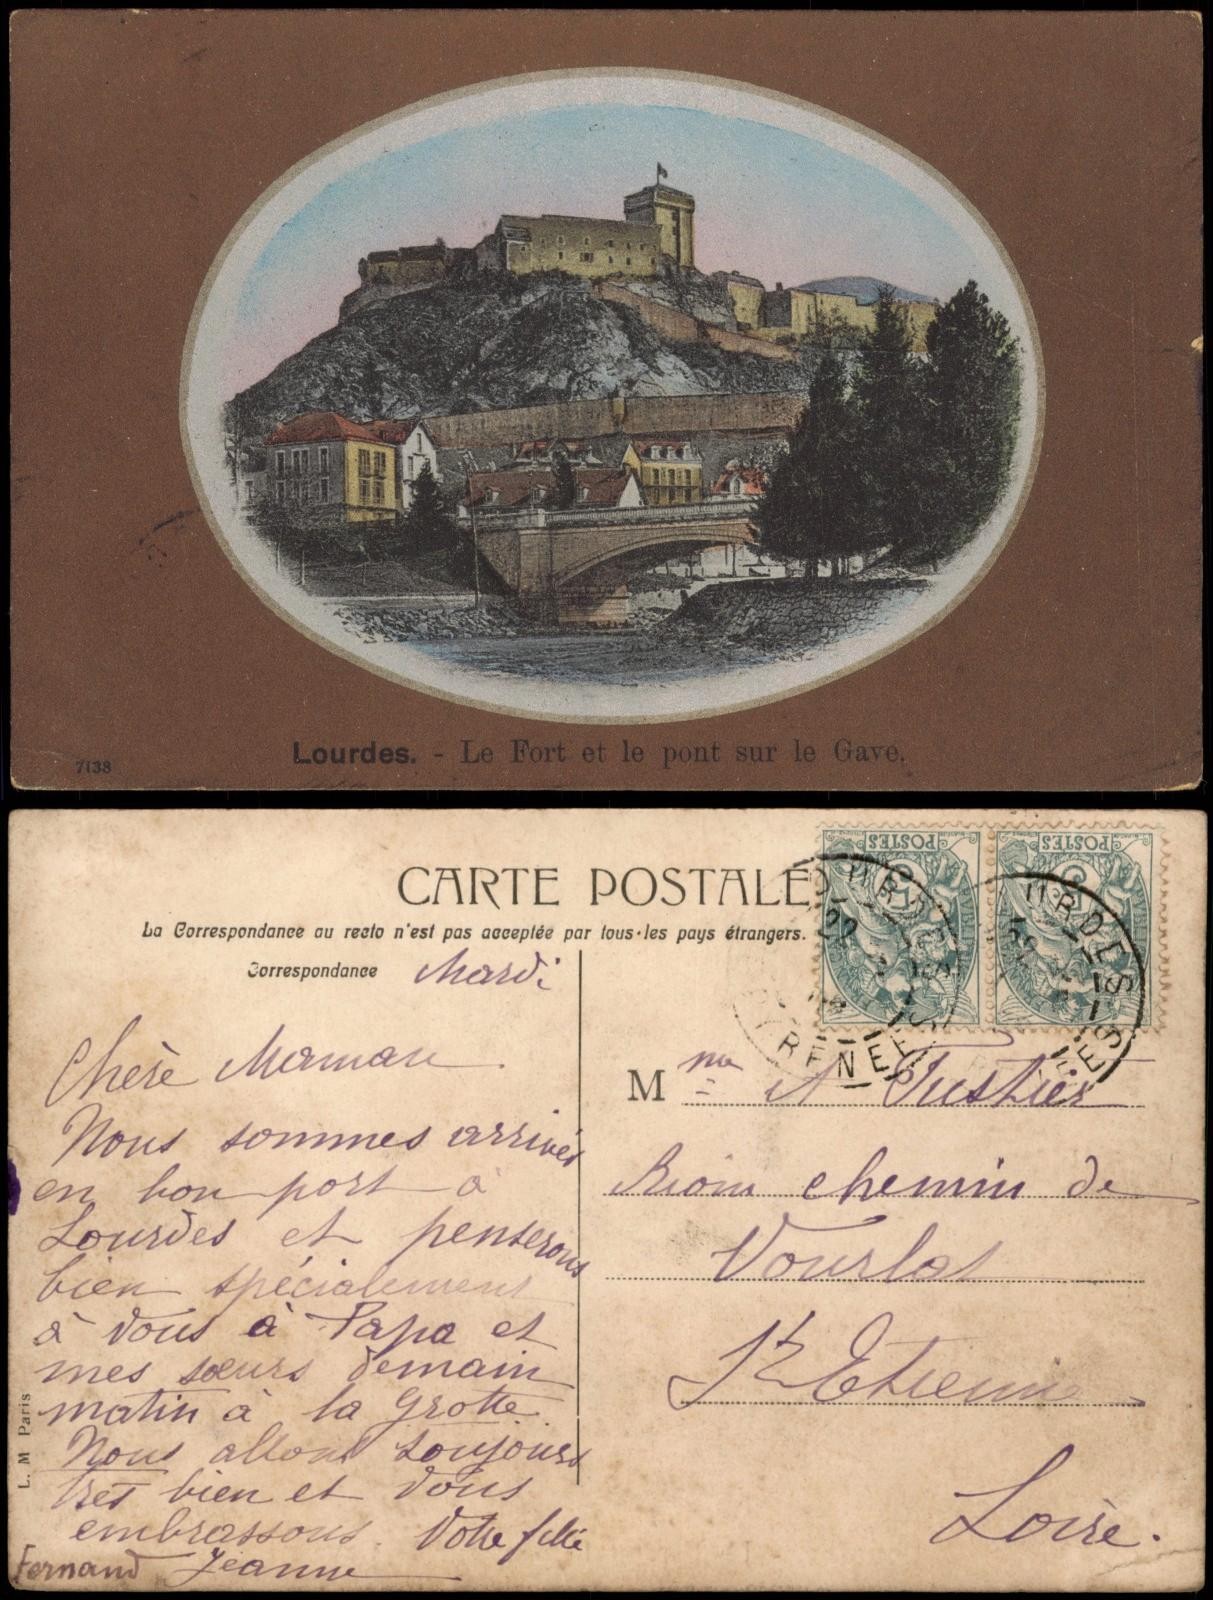 7138
Lourdes. - Le Fort et le pont sur le Gave.
CARTE POSTALE
La Correspondance au recto n'est pas acceptée par tous les pays étrangers.
Correspondance
Mardi
Chère Maman.
Nous sommes arrivés
en bon port à
Lourdes et penserons
bien spécialement
à vous à Papa et
mes sœurs demain
matin à la Grotte.
Nous allons toujours
très bien et vous
embrassons. Votre fille
Fernand Jeanne
L. M Paris
POSTES
5
POSTES
5
LOURDES
PYRENEES
URDES
M me A
chemin de
Vourlat
St Etienne
Loire.